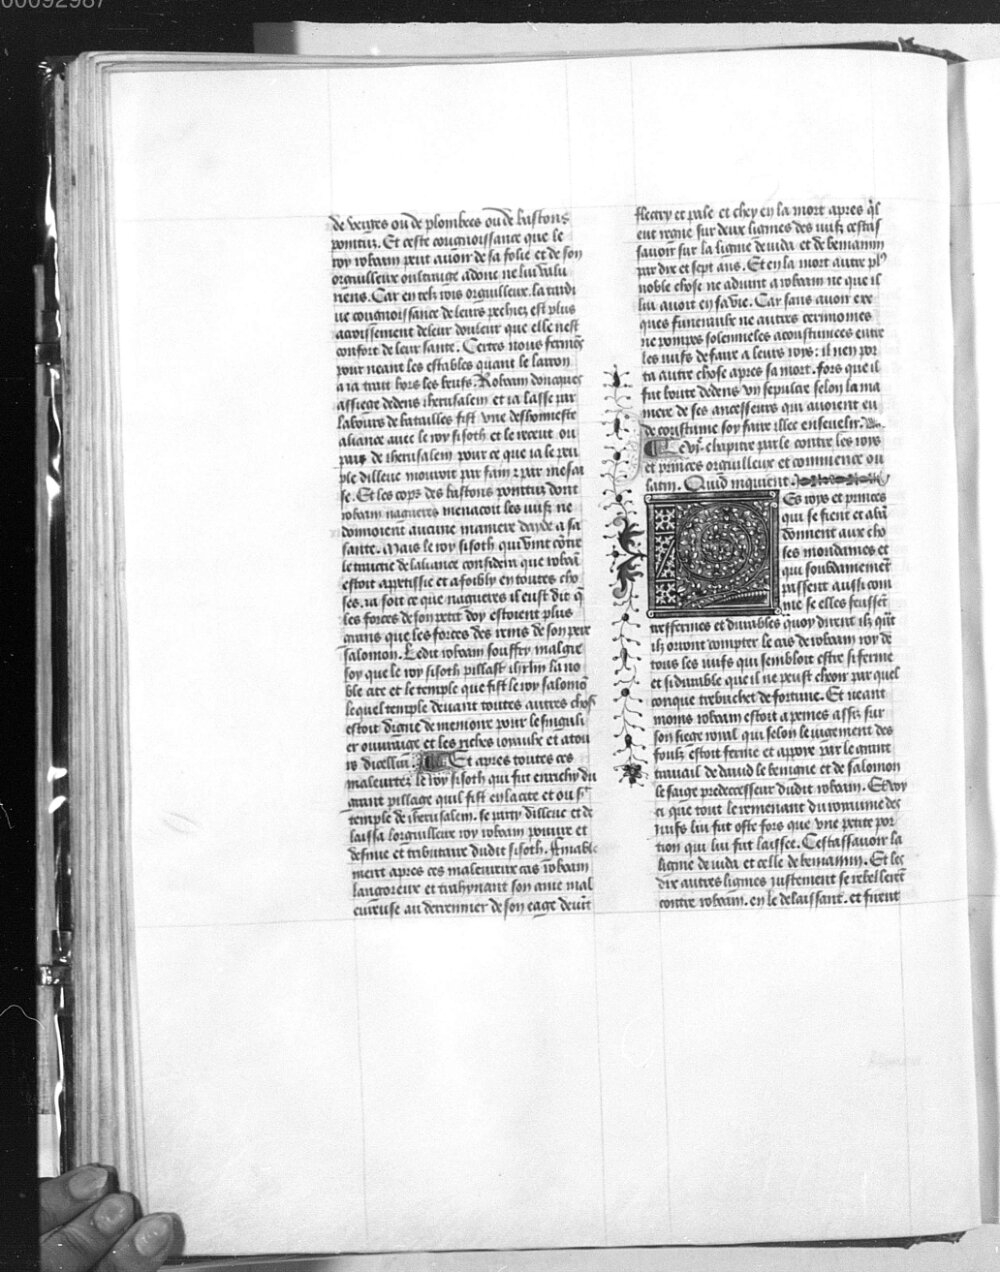 00092987
de verges ou de plombees ou de bastons
pointuz. Et ceste congnoissance que le
roy roboam peut auoir de sa folie et de son
orguilleux oultraige adonc ne lui valu
riens. Car en telz rois orguilleux. la tardi
ue congnoissance de leurs pechiez est plus
acroissement de leur douleur que elle nest
confort de leur sante. Certes nous fermons
pour neant les estables quant le larron
a ia trait hors les beufs. Roboam doncques
assiege dedens iherusalem et ia lasse par
labours de batailles fist vne deshonneste
aliance auec le roy sisoth et le receut ou
pais de iherusalem pour ce que ia le peu
ple dilleuc mouroit par faim et par mesai
se. Et les cops des bastons pointuz dont
roboam nagueres menacoit les iuifz ne
donnoient aucune maniere dayde a sa
sante. Mais le roy sisoth qui vint contre
le traictie de laliance considera que roboam
estoit apetissie et afoibly en toutes cho
ses. ia soit ce que nagueres il eust dit que
les forces de son petit doy estoient plus
grans que les forces des reins de son pere
salomon. Ledit roboam souffry malgre
soy que le roy sisoth pillast ihrlm la no
ble cite et le temple que fist le roy salomon
lequel temple deuant toutes autres choses
estoit digne de memoire pour le singuli
er ouuraige et les riches ioyaulx et atou
rs dicellui. Et apres toutes ces
maleurtez le roy sisoth qui fut enrichy du
grant pillage quil fist en la cite et ou
temple de iherusalem. se party dilleuc et de
laissa lorguilleux roy roboam poure et
desnue et tributaire dudit sisoth. finable
ment apres ces maleureux cas roboam
langoreux et trahynant son ame mal
eureuse au derrennier de son eage deuint
flectry et pale et chey en la mort apres quil
eut regne sur deux lignies des iuifz cestas
sauoir sur la lignie de iuda et de beniamin
par dix et sept ans. Et en la mort autre plus
noble chose ne aduint a roboam ne que il
lui auoit en sa vie. Car sans auoir exe
ques funeraulx ne autres cerimonies
ne pompes solenneles acoustumees entre
les iuifs de faire a leurs roys: il nen por
ta autre chose apres sa mort. fors que il
fut boute dedens vn sepulcre selon la ma
niere de ses ancesseurs qui auoient eu
de coustume soy faire illec enseuelir.
Le vi. chapitre parle contre les roys
et princes orguilleux et commence ou
latin. Quid inquient.
Les roys et princes
qui se fient et aban
donnent aux cho
ses mondaines et
qui soubdainement
passent aussi com
me se elles feussent
tresfermes et durables quoy dirent ilz quant
ilz oiront compter le cas de roboam roy de
tous les iuifs qui sembloit estre si ferme
et si durable que il ne peust cheoir par quel
conque trebuchet de fortune. Et neant
moins roboam estoit a peines assiz sur
son siege royal qui selon le iugement des
foulz estoit ferme et appoye par le grant
trauail de dauid le benigne et de salomon
le saige predecesseur dudit roboam. Et voy
ci que tout le remenant du royaume des
iuifs lui fut oste fors que vne petite por
tion qui lui fut laissee. Cestassauoir la
lignie de iuda et celle de beniamin. Et les
dix autres lignies iustement se rebellerent
contre roboam. en le delaissant. et firent